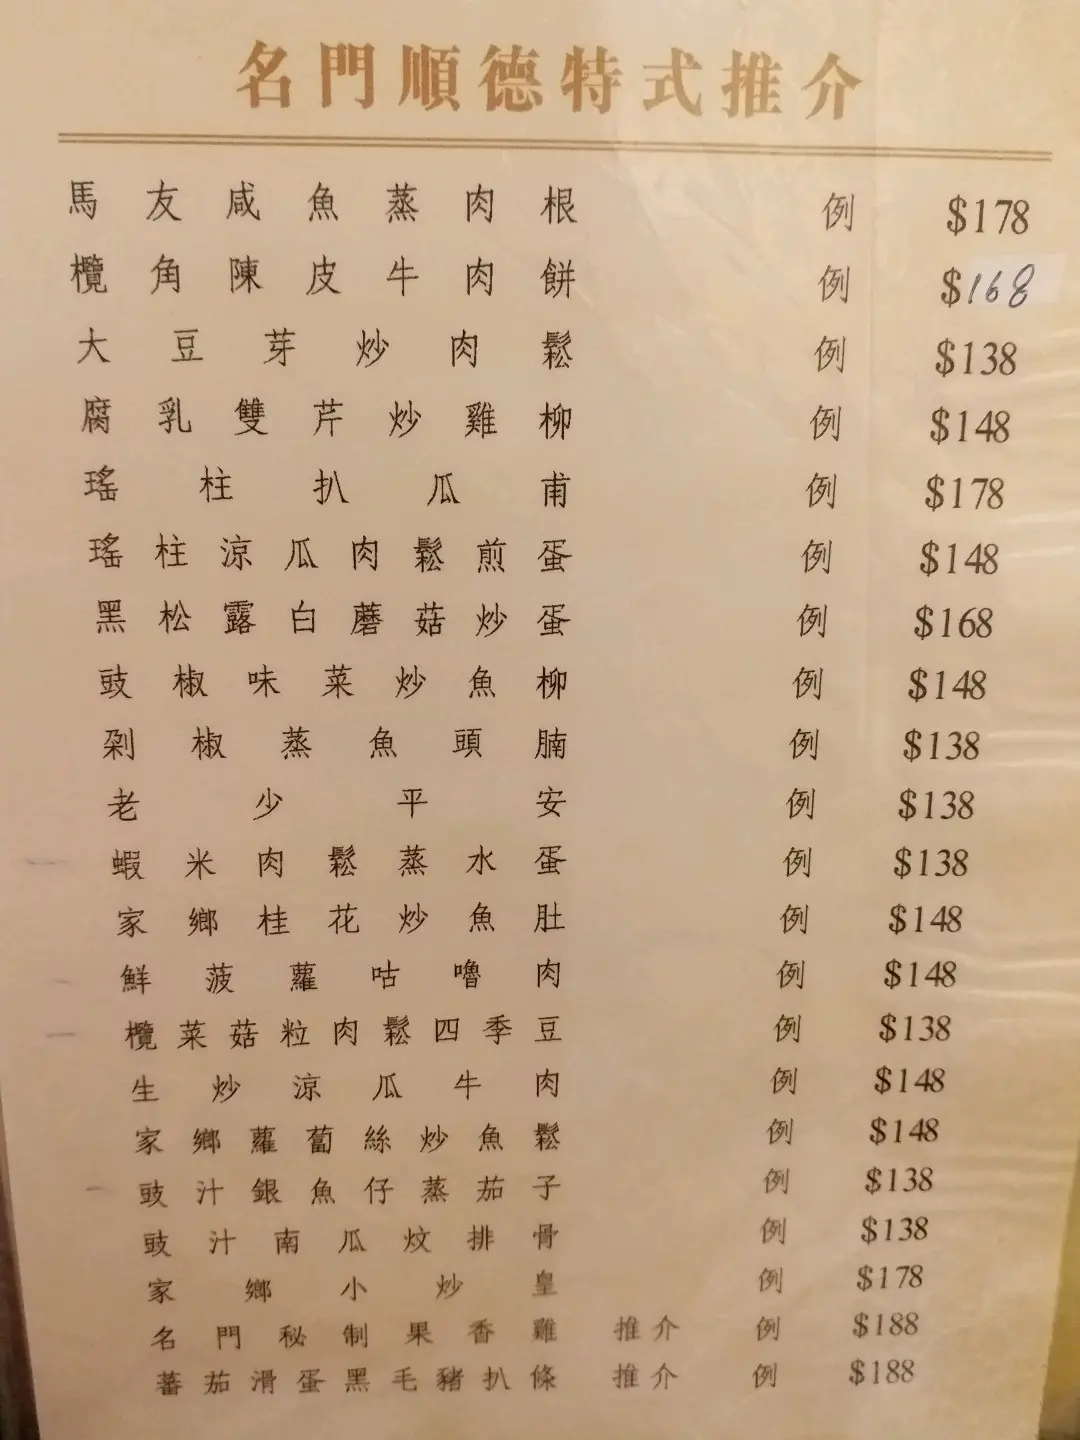 名門順德特式推介
馬友咸魚蒸肉根 例 $178
欖角陳皮牛肉餅 例 $168
大豆芽炒肉鬆 例 $138
腐乳雙芹炒雞柳 例 $148
瑤柱扒瓜甫 例 $178
瑤柱涼瓜肉鬆煎蛋 例 $148
黑松露白蘑菇炒蛋 例 $168
豉椒味菜炒魚柳 例 $148
剁椒蒸魚頭腩 例 $138
老少平安 例 $138
蝦米肉鬆蒸水蛋 例 $138
家鄉桂花炒魚肚 例 $148
鮮菠蘿咕嚕肉 例 $148
欖菜菇粒肉鬆四季豆 例 $138
生炒涼瓜牛肉 例 $148
家鄉蘿蔔絲炒魚鬆 例 $148
豉汁銀魚仔蒸茄子 例 $138
豉汁南瓜炆排骨 例 $138
家鄉小炒皇 例 $178
名門秘制果香雞 推介 例 $188
蕃茄滑蛋黑毛豬扒條 推介 例 $188